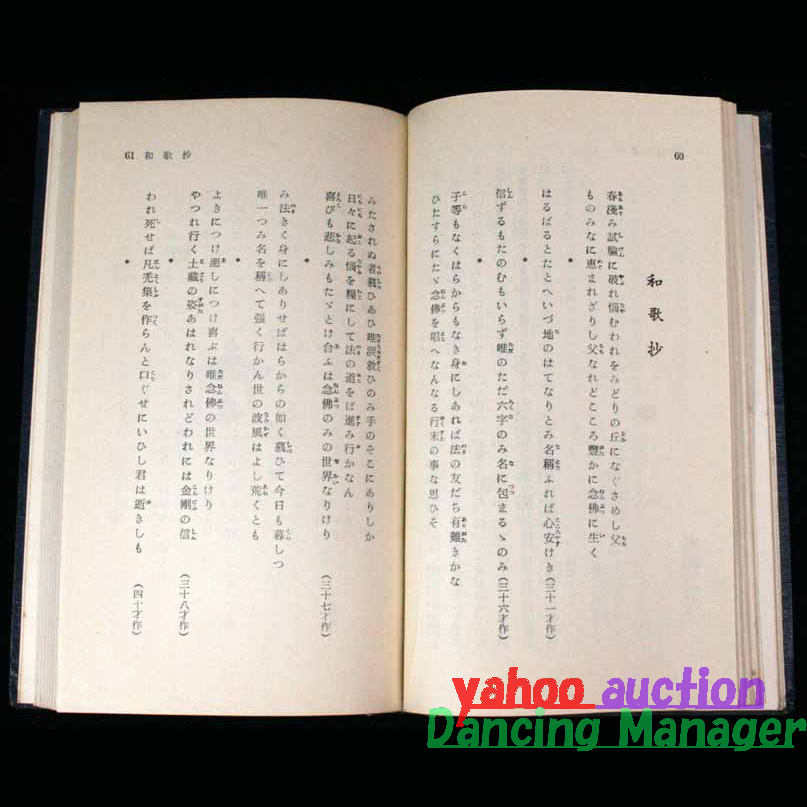 60
和歌抄
春淺み試驗に破れ惱むわれをみどりの丘になぐさめし父
ものみなに恵まれざりし父なれどこころ豐かに念佛に生く
•
はるばるとたとへいづ地のはてなりとみ名稱ふれば心安けき(三十一才作)
•
信ずるもたのむもいらず唯のただ六字のみ名に包まるゝのみ(三十六才作)
•
子等もなくはらからもなき身にしあれば法の友だち有難きかな
ひたすらにたゞ念佛を唱へなんなる行末の事な思ひそ
61 和歌抄
みたされぬ者慕ひあひ唯涙救ひのみ手のそこにありしか
日々に起る惱を糧にして法の道をば進み行かなん
喜びも悲しみもたゞとけ合ふは念佛のみの世界なりけり (三十七才作)
•
み法きく身にしありせばはらからの如く慕ひて今日も暮しつ
唯一つみ名を稱へて强く行かん世の波風はよし荒くとも
•
よきにつけ悪しにつけ喜ぶは唯念佛の世界なりけり
やつれ行く土藏の姿あはれなりされどわれには金剛の信 (三十八才作)
•
われ死せば凡禿集を作らんと口ぐせにいひし君は逝きしも (四十才作)
yahoo auction
Dancing Manager